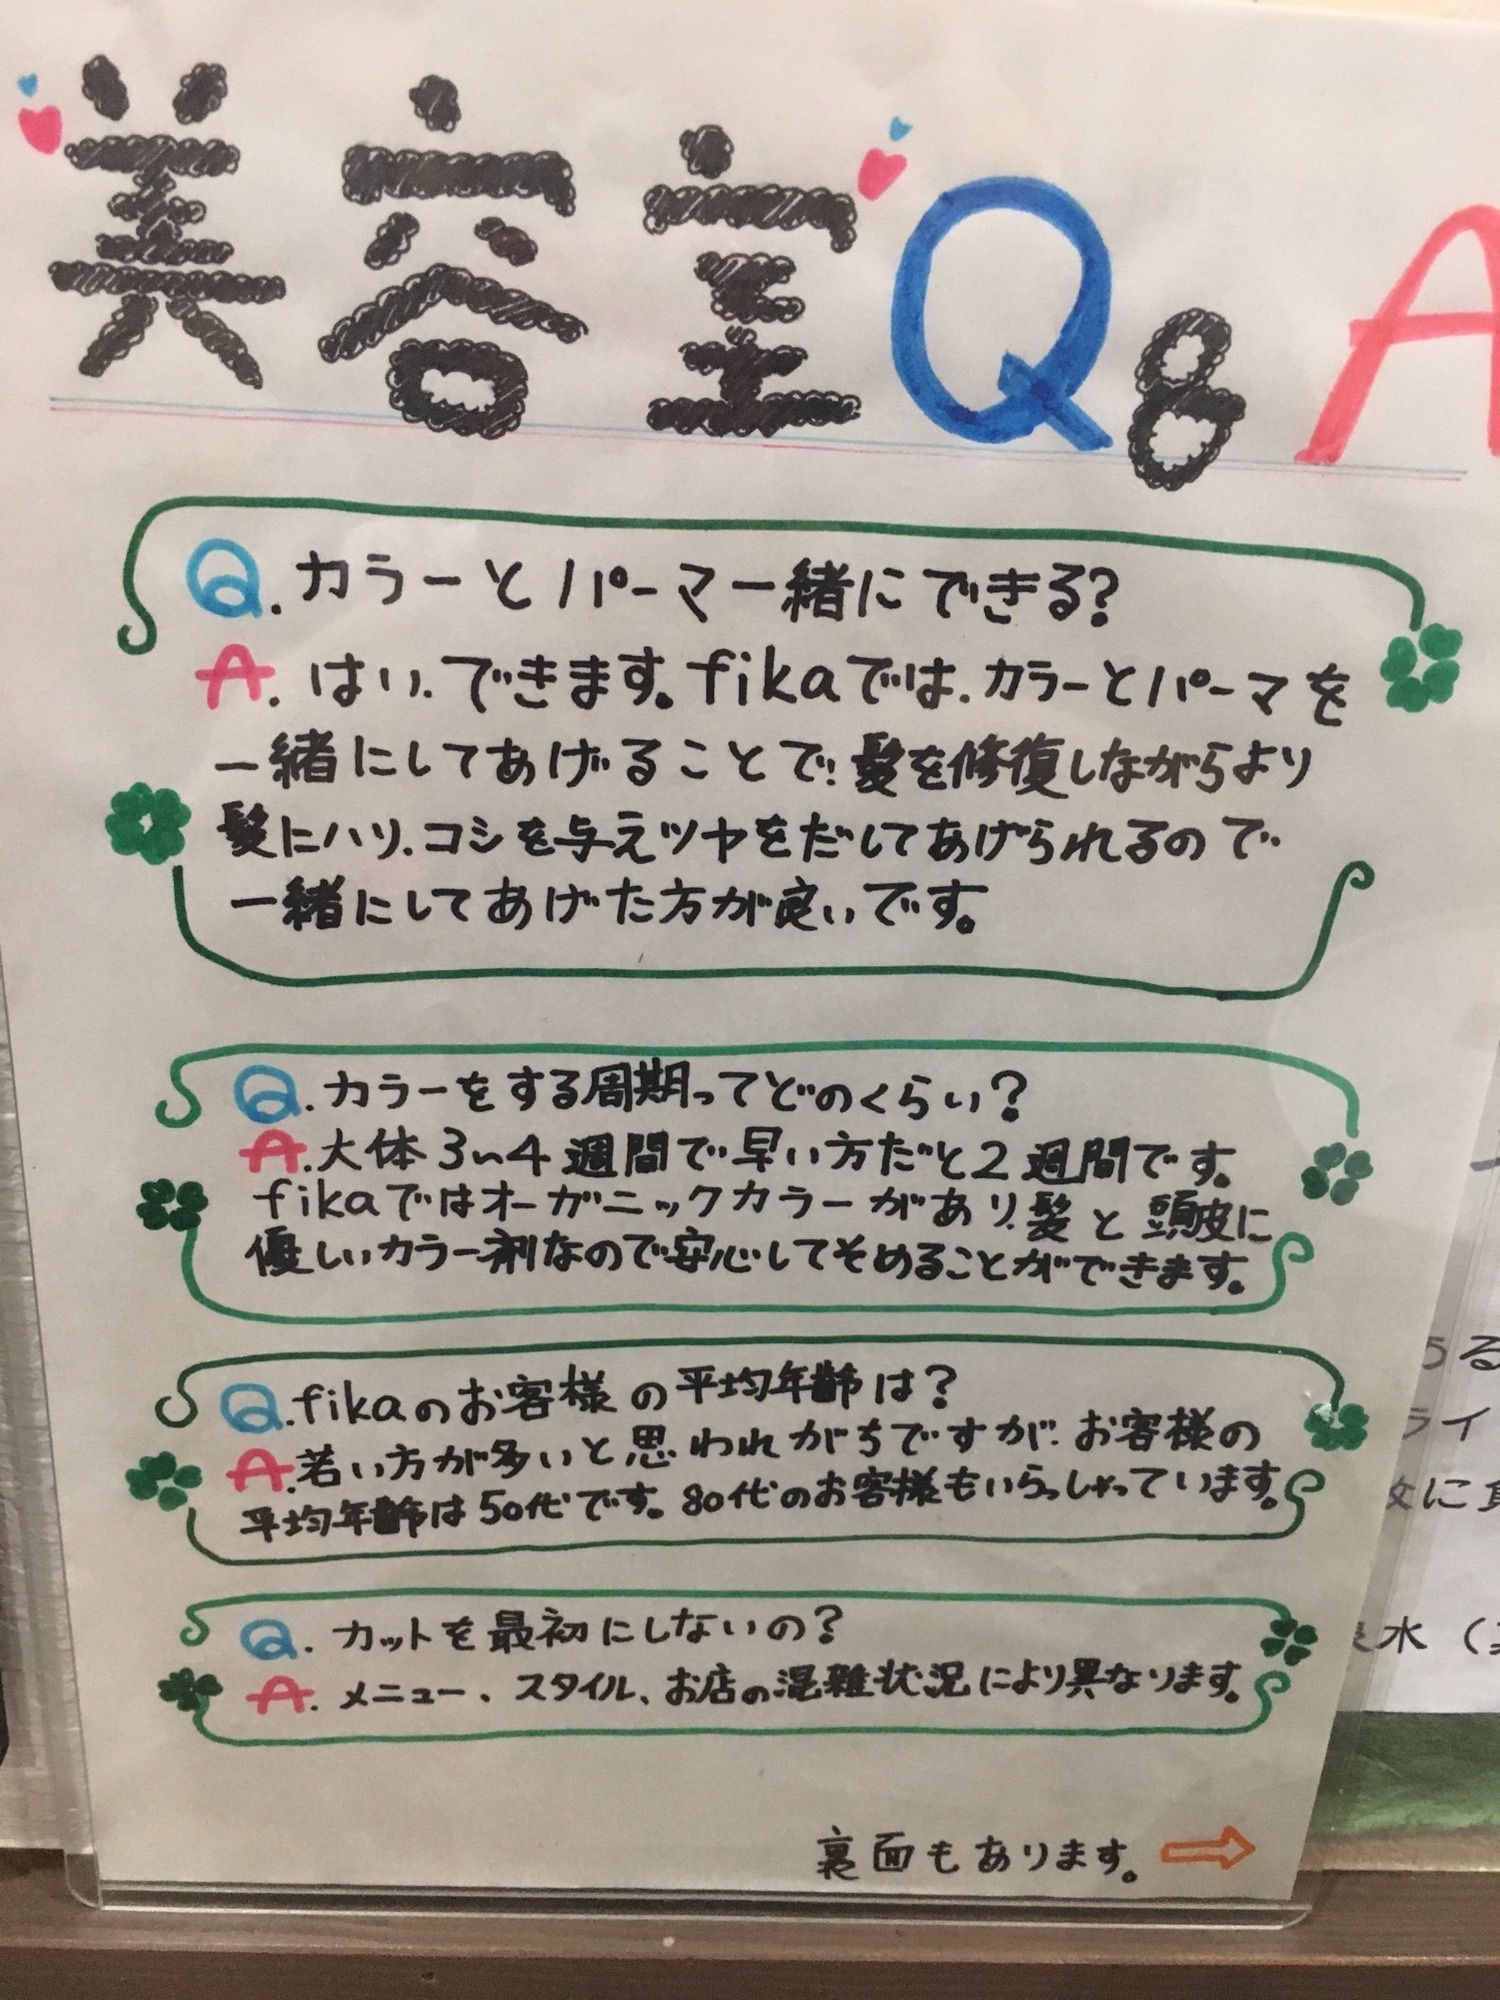 美容室Q&A
Q.カラーとパーマ一緒にできる?
A.はい.できます。fikaでは.カラーとパーマを
一緒にしてあげることで.髪を修復しながらより
髪にハリ.コシを与えツヤをだしてあげられるので.
一緒にしてあげた方が良いです。
Q.カラーをする周期ってどのくらい?
A.大体3〜4週間で早い方だと2週間です。
fikaではオーガニックカラーがあり.髪と頭皮に
優しいカラー剤なので安心してそめることができます。
Q.fikaのお客様の平均年齢は?
A.若い方が多いと思われがちですが.お客様の
平均年齢は50代です。80代のお客様もいらっしゃっています。
Q.カットを最初にしないの?
A.メニュー、スタイル、お店の混雑状況により異なります。
裏面もあります。
ある
ライ
水（